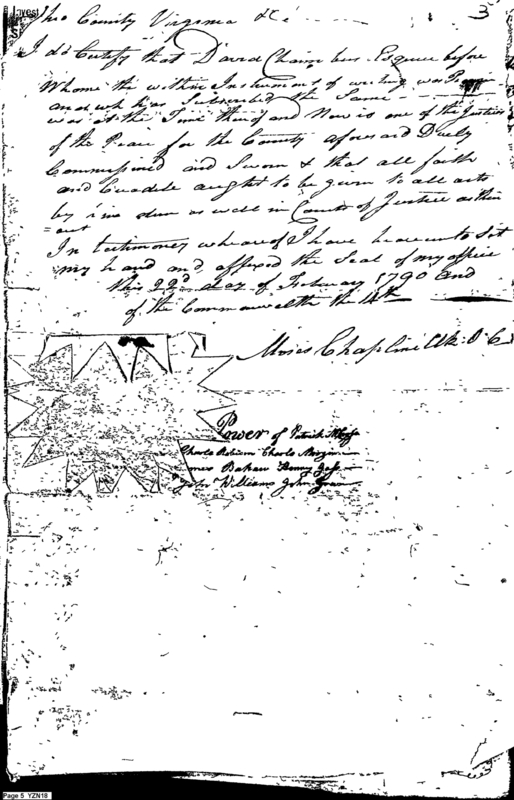 Ohio County Virginia &c
3
I do Certify that David Chambers Esquire before
Whome the within Instrument of writing was
and who has Subscribed the Same
was at the Time thereof and Now is one of the Justices
of the Peace for the County aforesaid Duely
Commissioned and Sworn & that all faith
and Creadele aught to be given to all acts
by him dun as well in Courts of Justice as thin
=out
In testimoney whareof I have heareunto Set
my hand and affixed the Seal of my office
this 22nd day of February 1790 and
of the Commonwealth the
Moses Chapline Clk: O C
Power of Patrick
Charls Charls
Henry
John Williams John
Page 5 YZN18